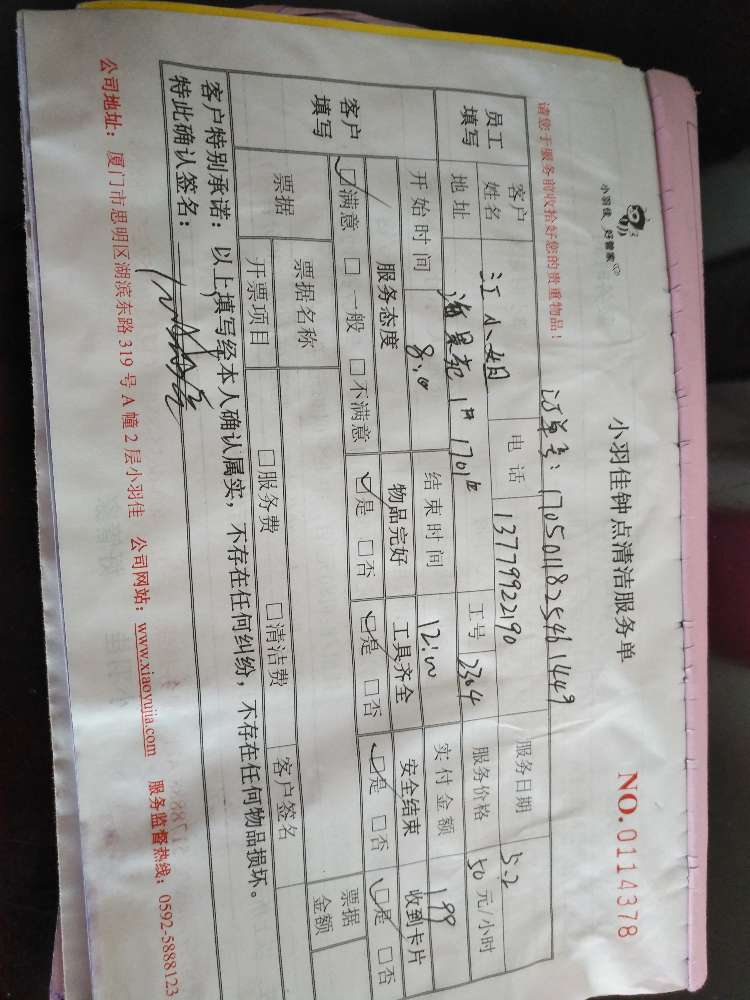 小羽佳 好管家
小羽佳钟点清洁服务单
NO.0114378
请您于服务前收拾好您的贵重物品！
订单号：1705011825461449
员工填写
客户姓名 江小姐 电话 13779922190 服务日期 5.2
地址 海景苑1# 1701# 工号 2304 服务价格 50 元/小时
开始时间 8:00 结束时间 12:00 实付金额 199
客户填写
服务态度 物品完好 工具齐全 安全结束 收到卡片
☑满意 □一般 □不满意 ☑是 □否 ☑是 □否 ☑是 □否 ☑是 □否
票据 票据名称 客户签名 票据金额
开票项目 □服务费 □清洁费
客户特别承诺：以上填写经本人确认属实，不存在任何纠纷，不存在任何物品损坏。
特此确认签名：
公司地址：厦门市思明区湖滨东路 319 号 A 幢 2 层小羽佳 公司网站：www.xiaoyujia.com 服务监督热线：0592-5888123